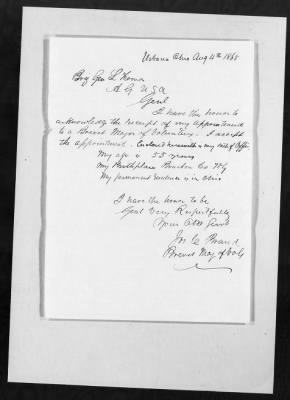 Urbana Ohio Aug 11th 1865
Brig Gen L Thomas
A G U S A
Genl
I have the honor to
acknowledge the receipt of my appointment
to a Brevet Major of Volunteers. I accept
the appointment. Enclosed herewith is my oath of Office
My age is 55 years
My Birthplace Co Ky
My permanent residence is in Ohio
I have the honor to be
Genl Very Respectfully
Your Obt Servt
Jos C Brand
Brevet Maj of Vols